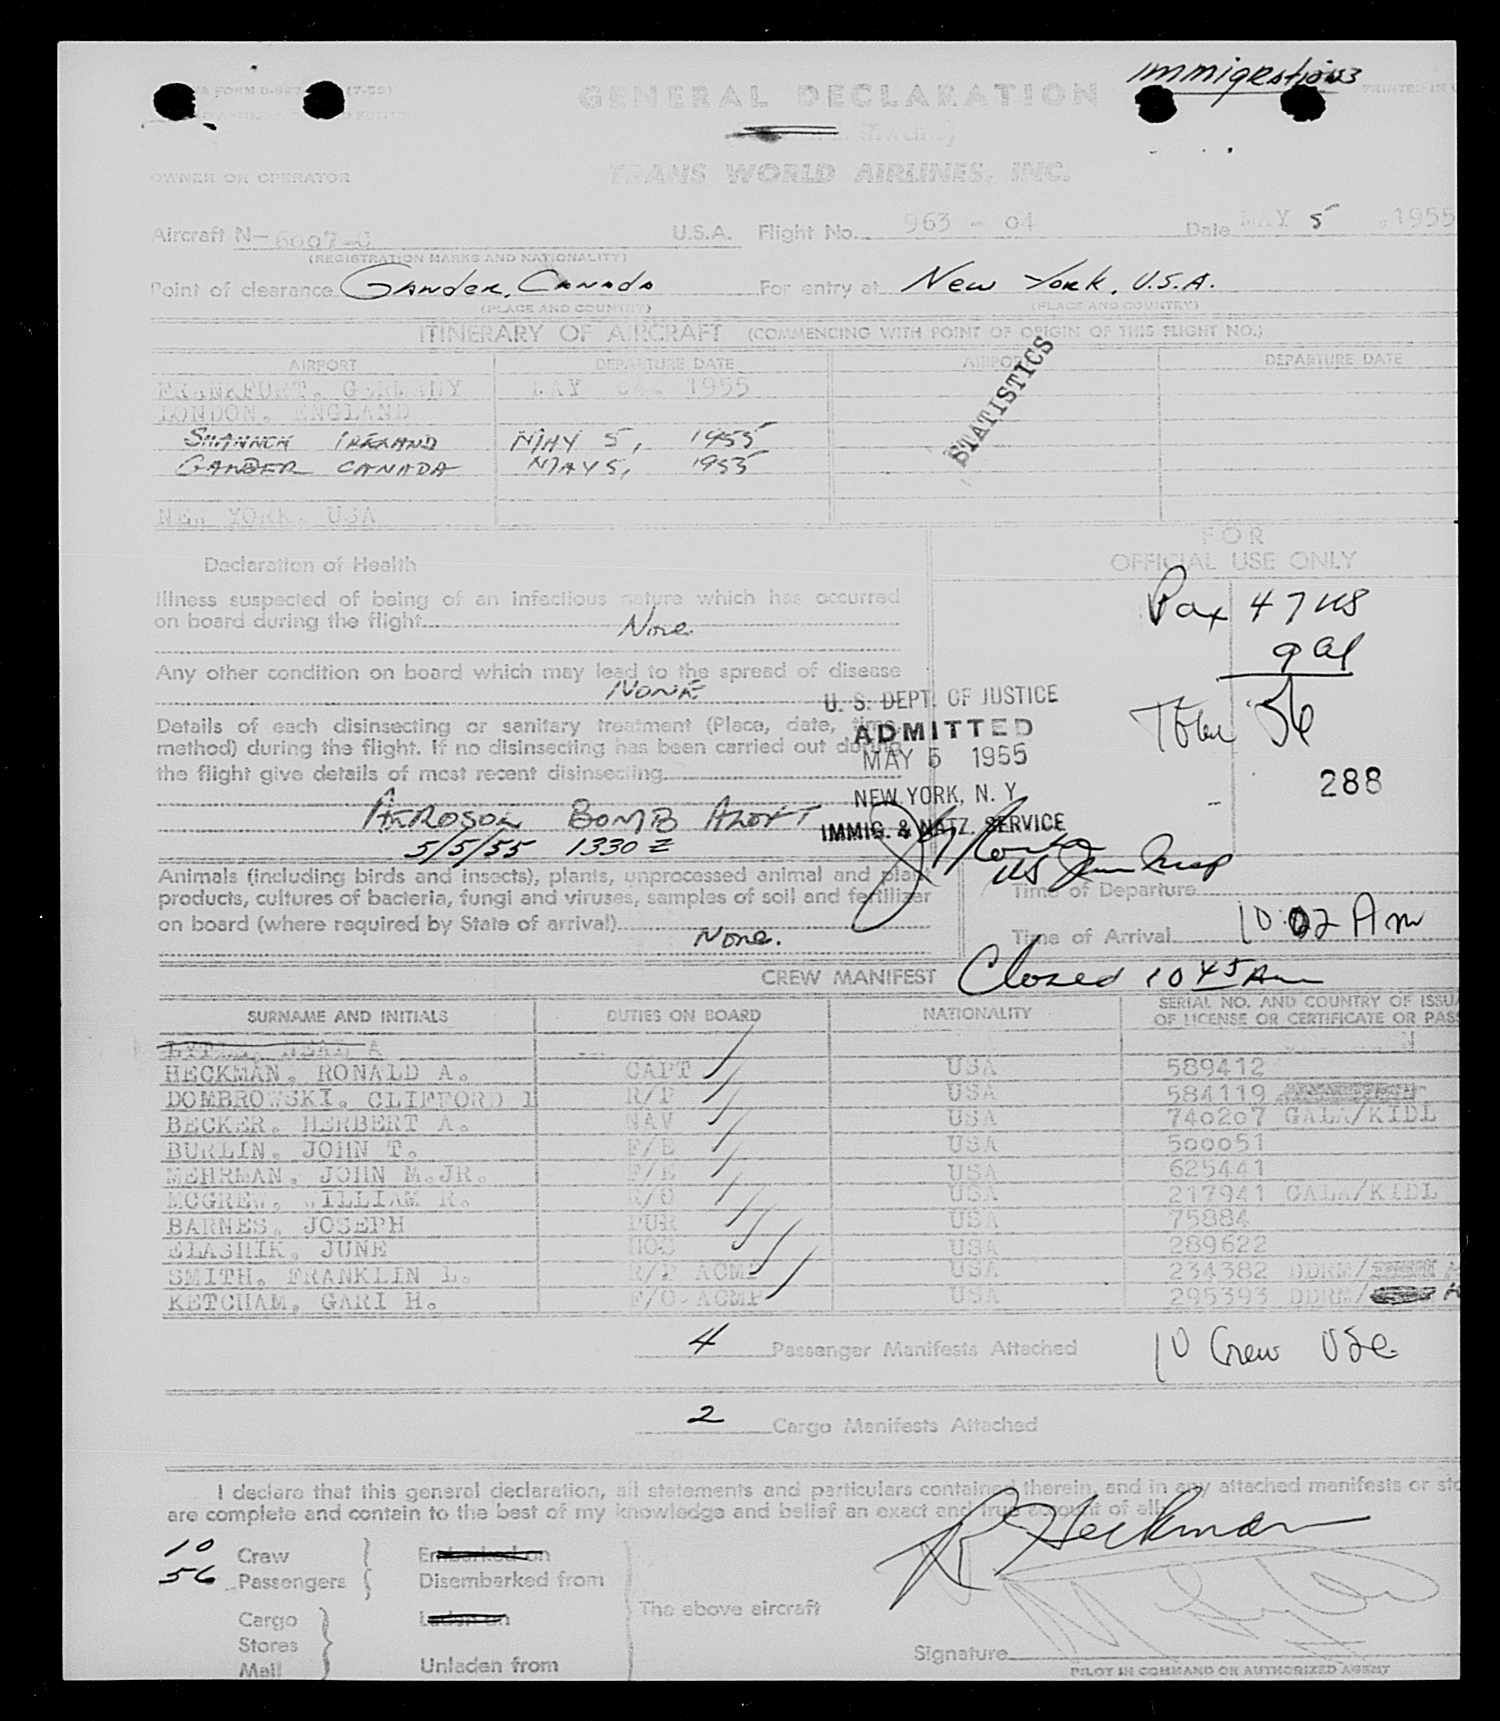 Immigrations
GENERAL DECLARATION
TRANS WORLD AIRLINES, INC.
OWNER OR OPERATOR
Aircraft N- U.S.A. Flight No. 963 - 04 Date MAY 5 , 1955
(REGISTRATION MARKS AND NATIONALITY)
Point of clearance Gander, Canada For entry at New York, U.S.A.
(PLACE AND COUNTRY) (PLACE AND COUNTRY)
ITINERARY OF AIRCRAFT (COMMENCING WITH POINT OF ORIGIN OF THIS FLIGHT NO.)
AIRPORT DEPARTURE DATE AIRPORT DEPARTURE DATE
FRANKFURT, GERMANY MAY 1955
LONDON, ENGLAND
SHANNON IRELAND MAY 5, 1955
GANDER CANADA MAY 5, 1955
NEW YORK, USA
STATISTICS
FOR
OFFICIAL USE ONLY
Declaration of Health
Illness suspected of being of an infectious nature which has occurred
on board during the flight None
Any other condition on board which may lead to the spread of disease
NONE
Details of each disinsecting or sanitary treatment (Place, date, time,
method) during the flight. If no disinsecting has been carried out during
the flight give details of most recent disinsecting
AEROSOL BOMB ALOFT
5/5/55 1330 Z
Pax 47 US
9 al
Total 56
288
U. S. DEPT. OF JUSTICE
ADMITTED
MAY 5 1955
NEW YORK, N. Y.
IMMIG. & NATZ. SERVICE
US Imm Insp
Animals (including birds and insects), plants, unprocessed animal and plant
products, cultures of bacteria, fungi and viruses, samples of soil and fertilizer
on board (where required by State of arrival) None.
Time of Departure
Time of Arrival 10 02 Am
CREW MANIFEST Closed 10 45 Am
SURNAME AND INITIALS DUTIES ON BOARD NATIONALITY SERIAL NO. AND COUNTRY OF ISSU
OF LICENSE OR CERTIFICATE OR PASS
HECKMAN, RONALD A. CAPT USA 589412
DOMBROWSKI, CLIFFORD R/P USA 584119
BECKER, HERBERT A. NAV USA 740207 GALA/KIDL
BURLIN, JOHN T. F/E USA 500051
MEHRMAN, JOHN M.JR. F/E USA 625441
MCGREW, WILLIAM R. R/O USA 217941 GALA/KIDL
BARNES, JOSEPH PUR USA 75884
ELASHIK, JUNE HOS USA 289622
SMITH, FRANKLIN L. R/P ACMP USA 234382 DDRM/
KETCHAM, GARI H. F/O ACMP USA 295393 DDRM/
4 Passenger Manifests Attached 10 Crew USc
2 Cargo Manifests Attached
I declare that this general declaration, all statements and particulars contained therein, and in any attached manifests or sto
are complete and contain to the best of my knowledge and belief an exact and true account of all
R Heckman
10 Crew Embarked on
56 Passengers Disembarked from
The above aircraft
Cargo Laden on
Stores
Mail Unladen from
Signature
PILOT IN COMMAND OR AUTHORIZED AGENT